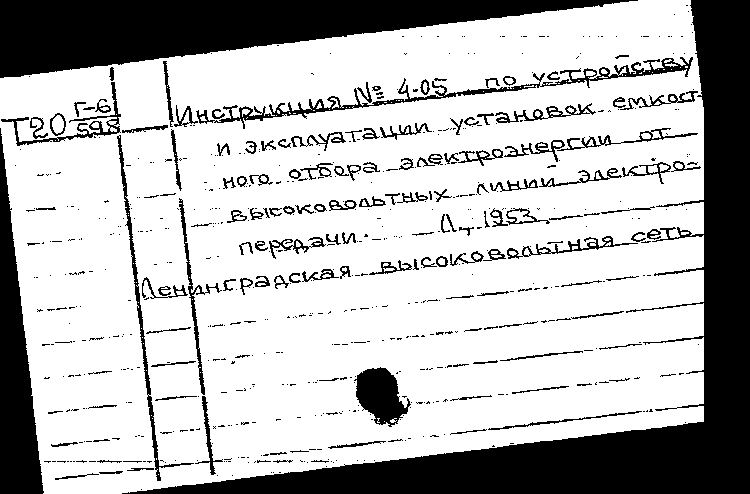 Г-6
Т20 598
Инструкция № 4-05 по устройству
и эксплуатации установок емкост-
ного отбора электроэнергии от
высоковольтных линий электро-
передачи. Л., 1953.
Ленинградская высоковольтная сеть